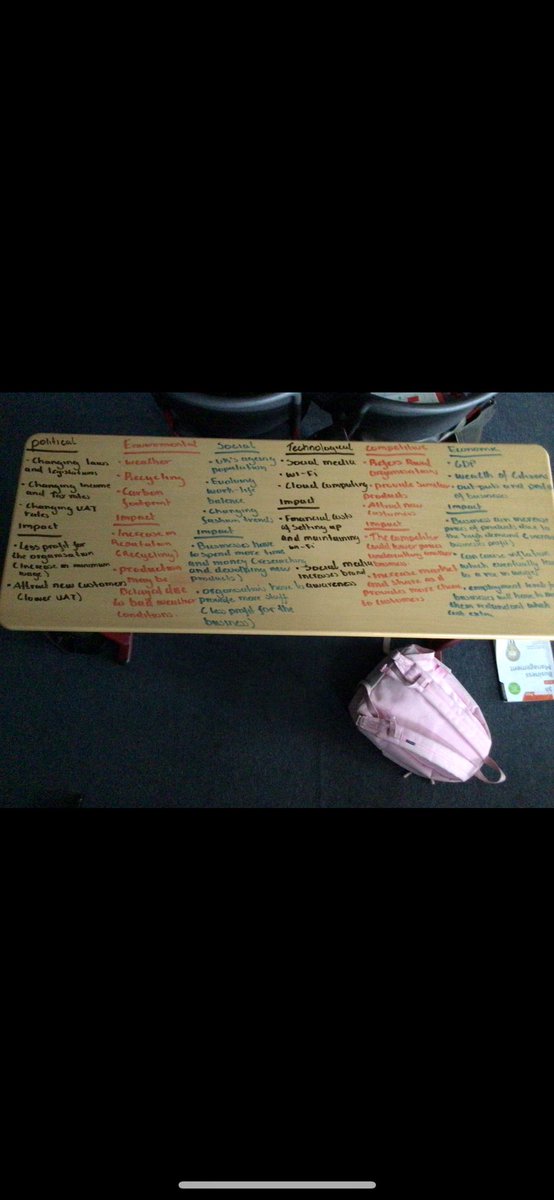 political
• Changing laws
and legislations
• Changing income
and Tax rates
• Changing VAT
rates
Impact
• Less profit for
the organisation
(Increase in minimum
wage)
• Attract new customers
(lower VAT)
Enviromental
• weather
• Recycling
• Carbon
footprint
Impact
• Increase in
Reputation
(Recycling)
• production
may be
Delayed due
to bad weather
conditions.
Social
• UK's ageing
population
• Evolving
work-life
balance
• Changing
fashion trends
impact
• Businesses have
to spend more time
and money (researching
and developing new
products)
• organisations have to
provide more staff
(less profit for the
business)
Technological
• Social media
• Wi-Fi
• Cloud computing
Impact
• Financial costs
of setting up
and maintaining
wi-fi
• Social media
increases brand
awareness
Competitive
• Refers Rival
organisations
• provide similar
products
• Attract new
customers
impact
• The competitor
could lower prices
business
• Increase market
and share as it
provides more choice
to customers
Economic
• GDP
• Wealth of
of business
Impact
• Business can increase
price of products due to
the high demand
business profit)
• Can cause inflation
which eventually
to a rise in wages
• employment
business will have to
them redundant which
cost extra
Business
Management